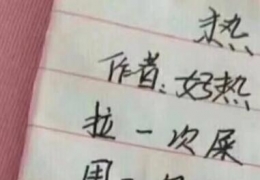 热
作者:好热
拉一次屎
用一